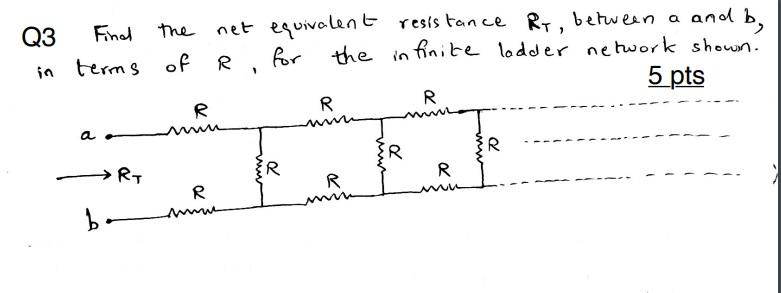 Q3 Find the net equivalent resistance RT, between a and b,
in terms of R, for the infinite ladder network shown.
5 pts
R
R
R
a
R
R
R
RT
R
R
R
b